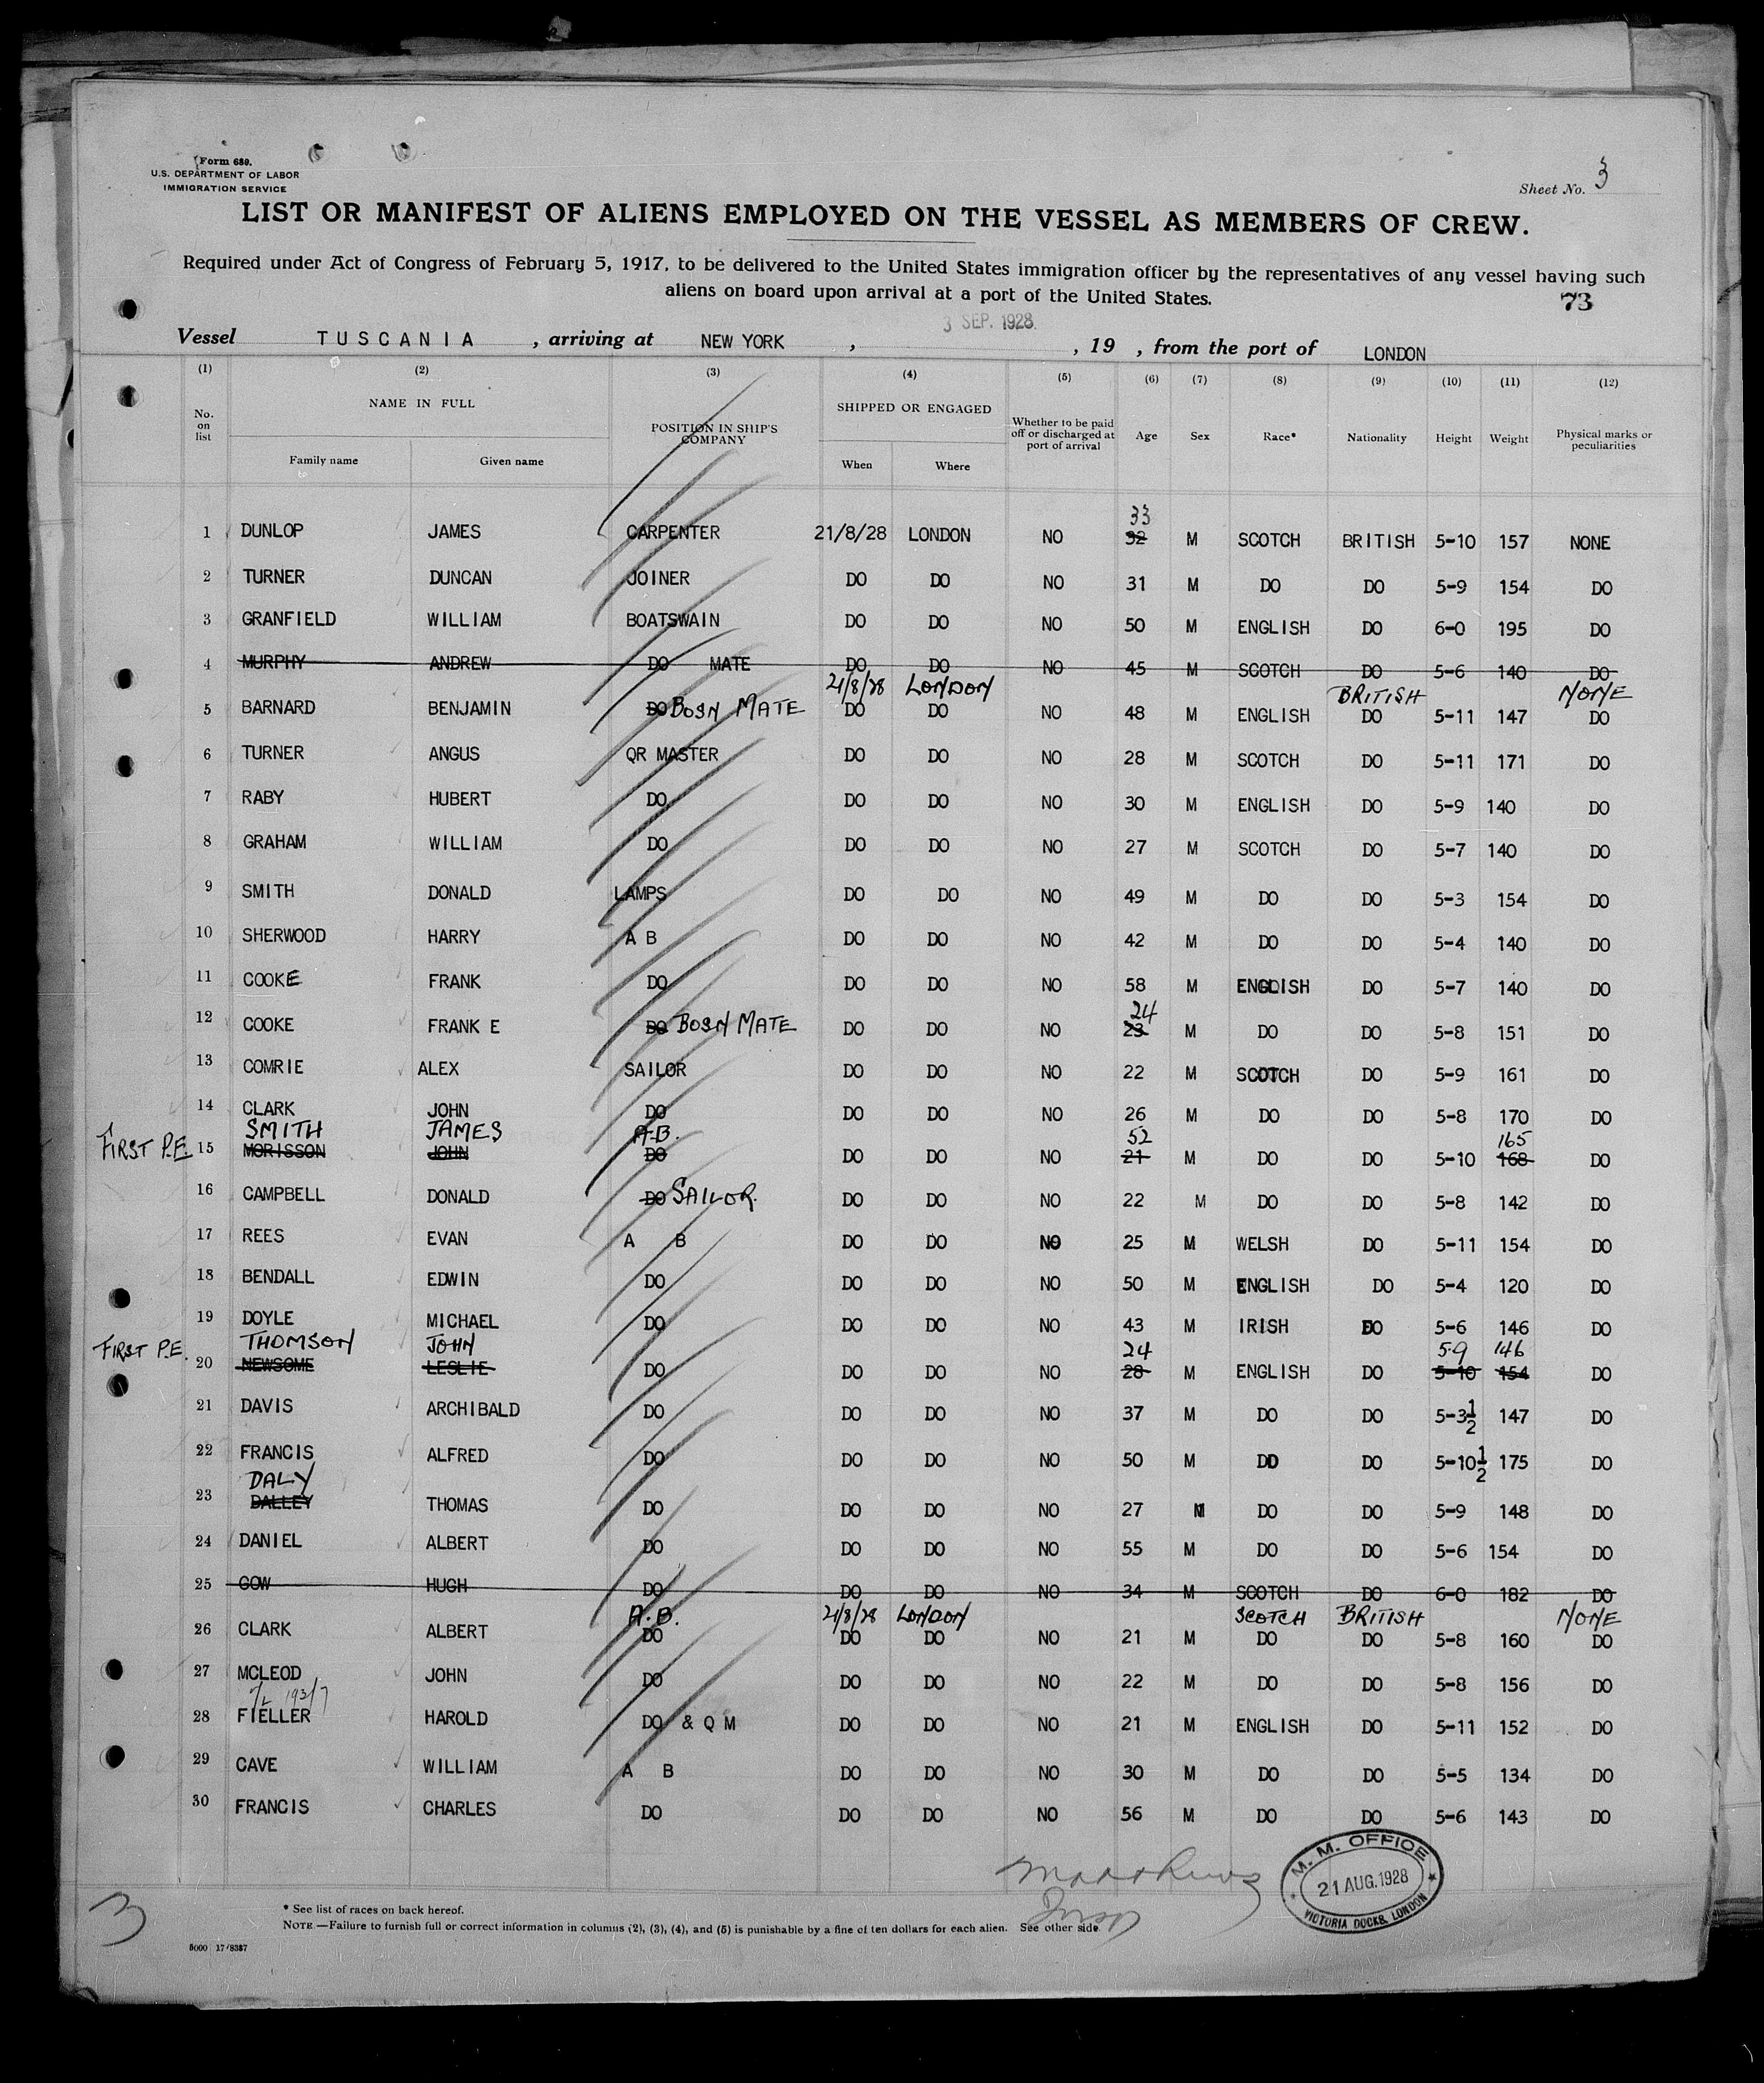 Form 680.
U.S. DEPARTMENT OF LABOR
IMMIGRATION SERVICE
Sheet No. 3
LIST OR MANIFEST OF ALIENS EMPLOYED ON THE VESSEL AS MEMBERS OF CREW.
Required under Act of Congress of February 5, 1917, to be delivered to the United States immigration officer by the representatives of any vessel having such
aliens on board upon arrival at a port of the United States.
73
3 SEP. 1928
Vessel TUSCANIA , arriving at NEW YORK , , 19 , from the port of LONDON
(1) (2) (3) (4) (5) (6) (7) (8) (9) (10) (11) (12)
No. on list NAME IN FULL POSITION IN SHIP'S COMPANY SHIPPED OR ENGAGED Whether to be paid off or discharged at port of arrival Age Sex Race* Nationality Height Weight Physical marks or peculiarities
Family name Given name When Where
33
1 DUNLOP JAMES CARPENTER 21/8/28 LONDON NO 32 M SCOTCH BRITISH 5-10 157 NONE
2 TURNER DUNCAN JOINER DO DO NO 31 M DO DO 5-9 154 DO
3 GRANFIELD WILLIAM BOATSWAIN DO DO NO 50 M ENGLISH DO 6-0 195 DO
4 MURPHY ANDREW DO MATE DO DO NO 45 M SCOTCH DO 5-6 140 DO
21/8/28 LONDON BRITISH NONE
5 BARNARD BENJAMIN DO BOSN MATE DO DO NO 48 M ENGLISH DO 5-11 147 DO
6 TURNER ANGUS QR MASTER DO DO NO 28 M SCOTCH DO 5-11 171 DO
7 RABY HUBERT DO DO DO NO 30 M ENGLISH DO 5-9 140 DO
8 GRAHAM WILLIAM DO DO DO NO 27 M SCOTCH DO 5-7 140 DO
9 SMITH DONALD LAMPS DO DO NO 49 M DO DO 5-3 154 DO
10 SHERWOOD HARRY A B DO DO NO 42 M DO DO 5-4 140 DO
11 COOKE FRANK DO DO DO NO 58 M ENGLISH DO 5-7 140 DO
24
12 COOKE FRANK E DO BOSN MATE DO DO NO 23 M DO DO 5-8 151 DO
13 COMRIE ALEX SAILOR DO DO NO 22 M SCOTCH DO 5-9 161 DO
14 CLARK JOHN DO DO DO NO 26 M DO DO 5-8 170 DO
SMITH JAMES A.B. 52 165
FIRST P.E. 15 MORISSON JOHN DO DO DO NO 21 M DO DO 5-10 168 DO
16 CAMPBELL DONALD DO SAILOR. DO DO NO 22 M DO DO 5-8 142 DO
17 REES EVAN A B DO DO NO 25 M WELSH DO 5-11 154 DO
18 BENDALL EDWIN DO DO DO NO 50 M ENGLISH DO 5-4 120 DO
19 DOYLE MICHAEL DO DO DO NO 43 M IRISH DO 5-6 146 DO
THOMSON JOHN 24 5.9 146
FIRST P.E. 20 NEWSOME LESLIE DO DO DO NO 28 M ENGLISH DO 5-10 154 DO
21 DAVIS ARCHIBALD DO DO DO NO 37 M DO DO 5-3½ 147 DO
22 FRANCIS ALFRED DO DO DO NO 50 M DO DO 5-10½ 175 DO
DALY
23 DALLEY THOMAS DO DO DO NO 27 M DO DO 5-9 148 DO
24 DANIEL ALBERT DO DO DO NO 55 M DO DO 5-6 154 DO
25 GOW HUGH DO DO DO NO 34 M SCOTCH DO 6-0 182 DO
A.B. 21/8/28 LONDON SCOTCH BRITISH NONE
26 CLARK ALBERT DO DO DO NO 21 M DO DO 5-8 160 DO
27 MCLEOD JOHN DO DO DO NO 22 M DO DO 5-8 156 DO
193/7
28 FIELLER HAROLD DO & Q M DO DO NO 21 M ENGLISH DO 5-11 152 DO
29 CAVE WILLIAM A B DO DO NO 30 M DO DO 5-5 134 DO
30 FRANCIS CHARLES DO DO DO NO 56 M DO DO 5-6 143 DO
M. M. OFFICE
21 AUG. 1928
VICTORIA DOCKS, LONDON
3
* See list of races on back hereof.
NOTE.—Failure to furnish full or correct information in columns (2), (3), (4), and (5) is punishable by a fine of ten dollars for each alien. See other side.
5000 17/8387